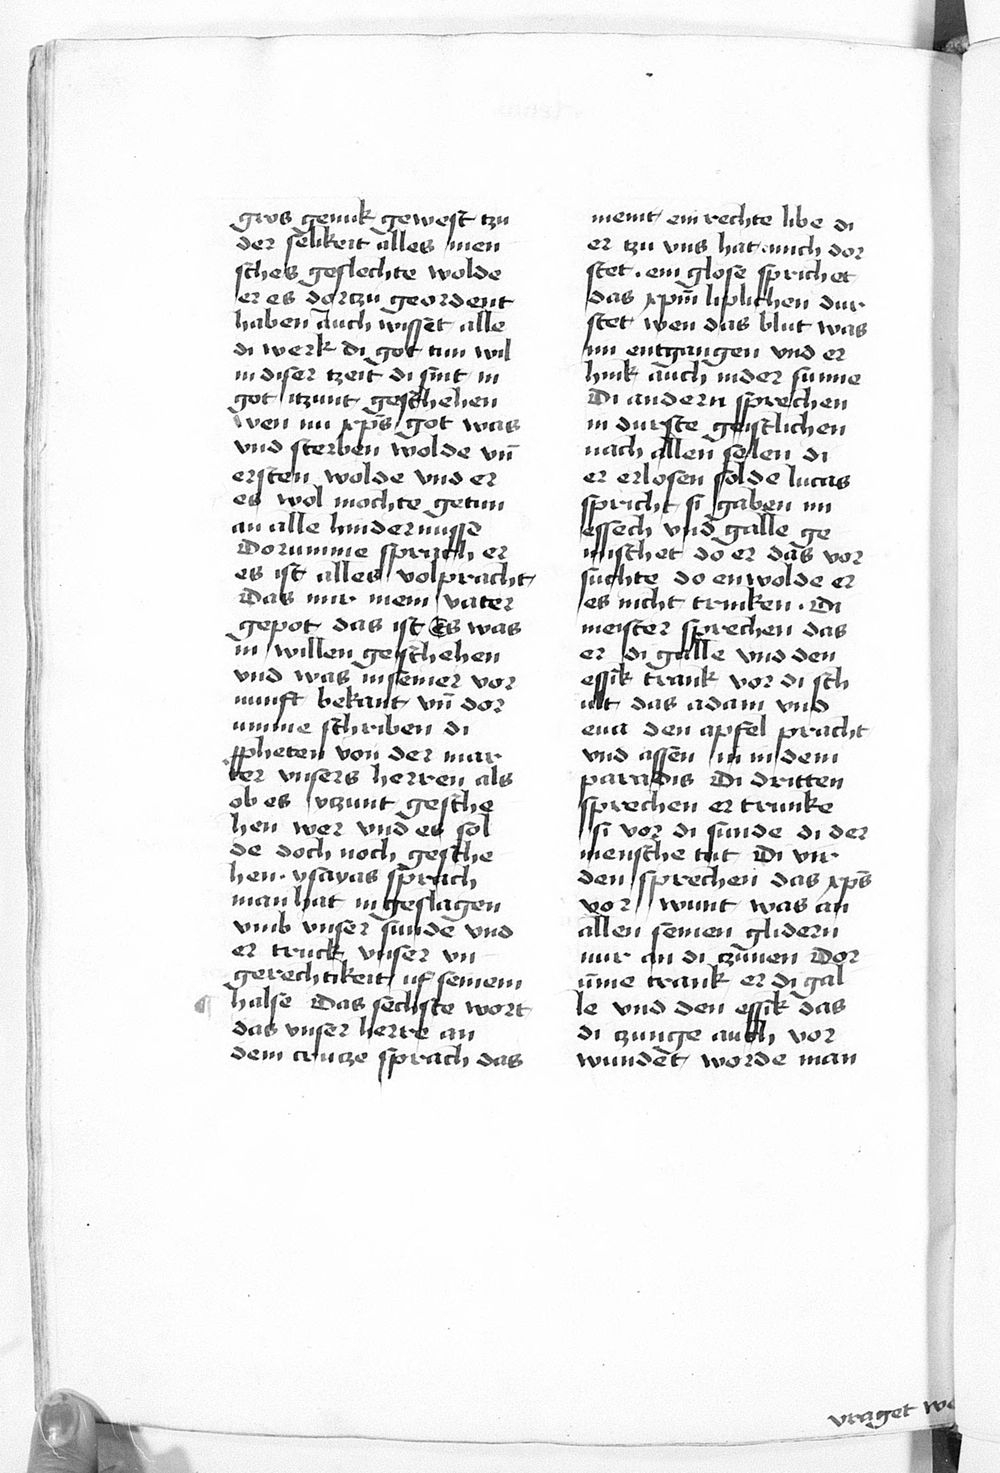 gros genuk gewest tzu
der selikeit alles men
sches geslechte wolde
er es dortzu geordent
haben auch wisset alle
di werk di got tun wil
in diser tzeit di sint in
got itzunt geschehen
wen nu xp̄s got was
vnd sterben wolde vn̄
ersten wolde vnd er
es wol mochte getun
an alle hindernisse
Dorumme sprach er
es ist alles volpracht
Das mir mein vater
gepot das ist Es was
in willen geschehen
vnd was in seiner vor
nunft bekant vn̄ dor
umme schriben di
ppheten von der mar
ter vnsers herren als
ob es ytzunt gesche
hen wer vnd es sol
de doch noch gesche
hen · ysayas sprach
man hat in geslagen
vmb vnser sunde vnd
er truck vnser vn
gerechtikeit uf seinem
halse Das sechste wort
das vnser herre an
dem crutze sprach das
meint ein rechte libe di
er tzu vns hat · mich dor
stet · ein glose sprichet
das xpm̄ liplichen dur
stet wen das blut was
im entgangen vnd er
hink auch in der sunne
Di andern sprechen
in durste geistlichen
nach allen selen di
er erlosen solde lucas
spricht si gaben im
essech vnd galle ge
mischet do er das vor
suchte do en wolde er
es nicht trinken · Di
meister sprechen das
er di galle vnd den
essik trank vor di sch
ult das adam vnd
eua den apfel pracht
vnd assen in in dem
paradis Di dritten
sprechen er trunke
si vor di sunde di der
mensche tut Di vir
den sprechen das xp̄s
vor wunt was an
allen seinen glidern
nur an di czūnen Dor
ūme trank er di gal
le vnd den essik das
di czunge auch vor
wundet worde man
vraget